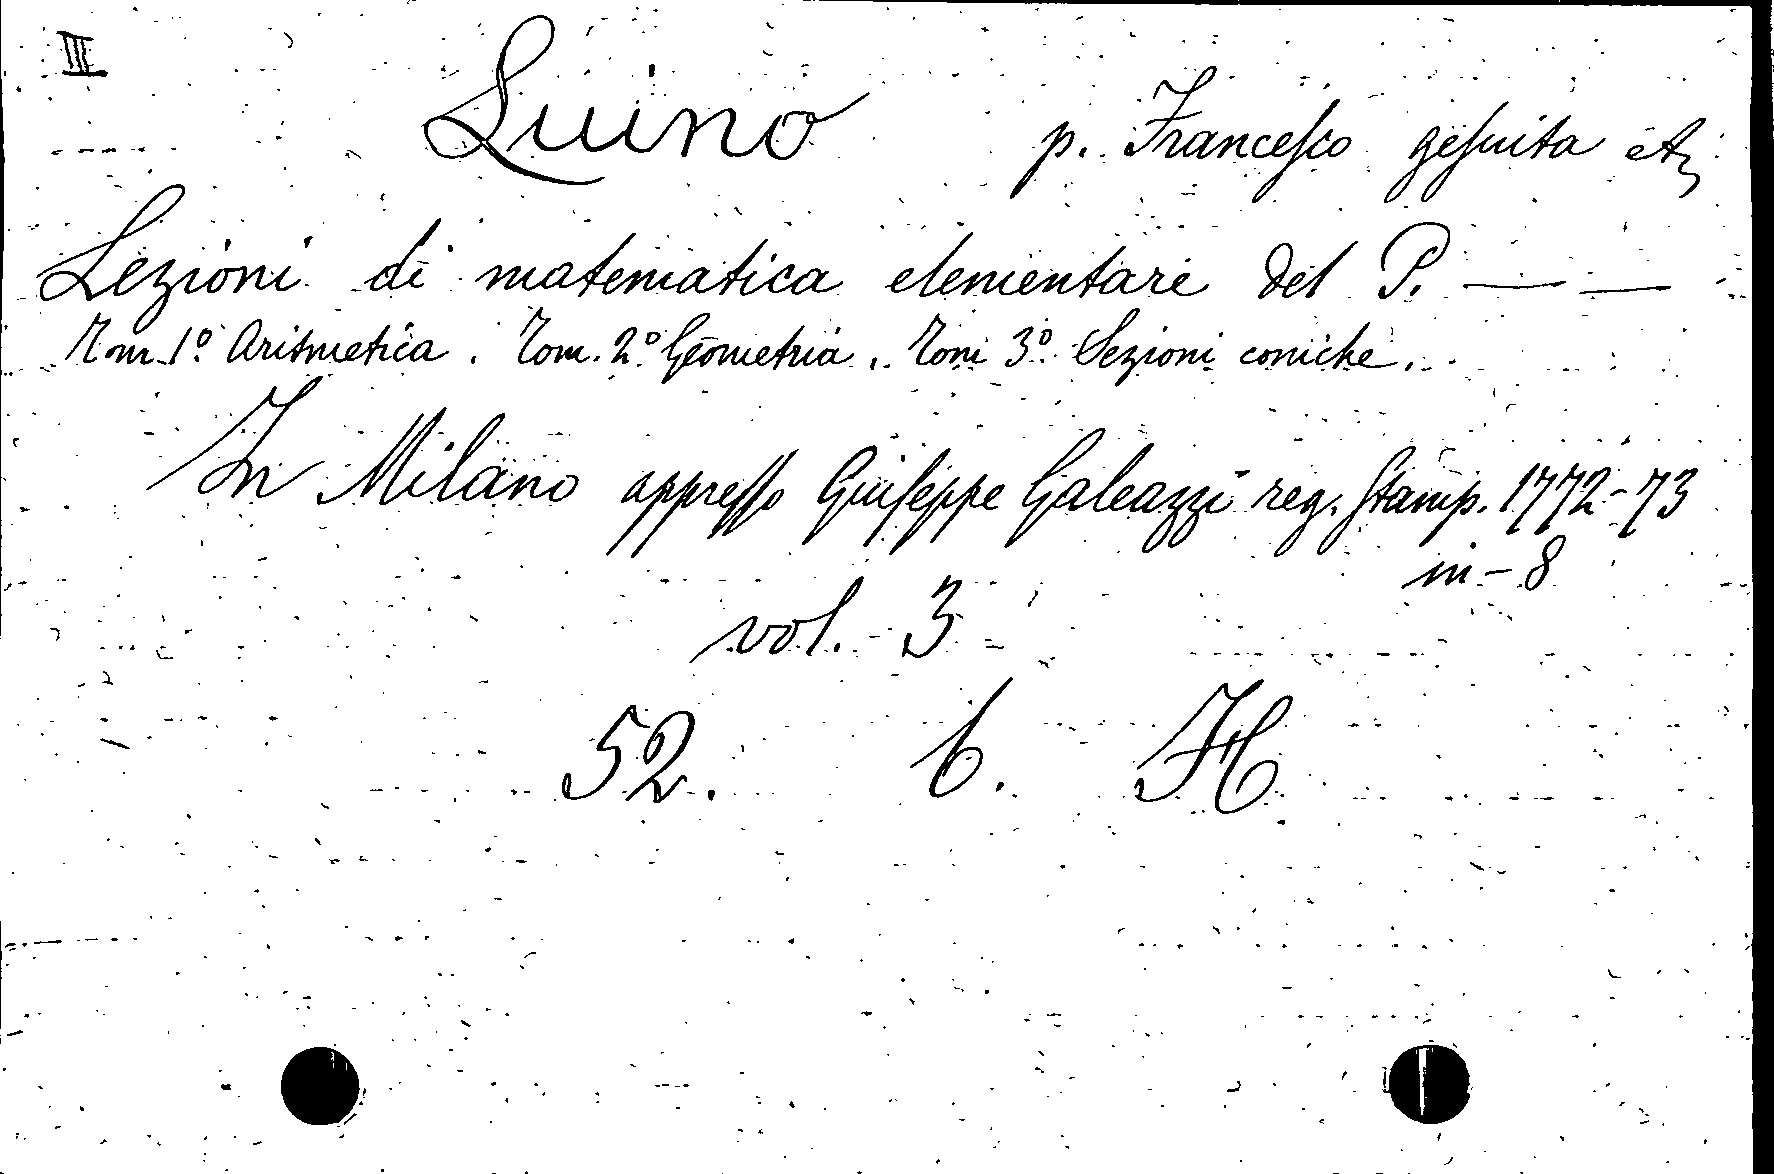 III
Luino p. Francesco gesuita etc
Lezioni di matematica elementare del P. — —
Tom. 1º Aritmetica. Tom. 2º Geometria. Tom 3º Sezioni coniche.
In Milano appresso Giuseppe Galeazzi reg. Stamp. 1772-73
in-8
vol. 3
52. b. H